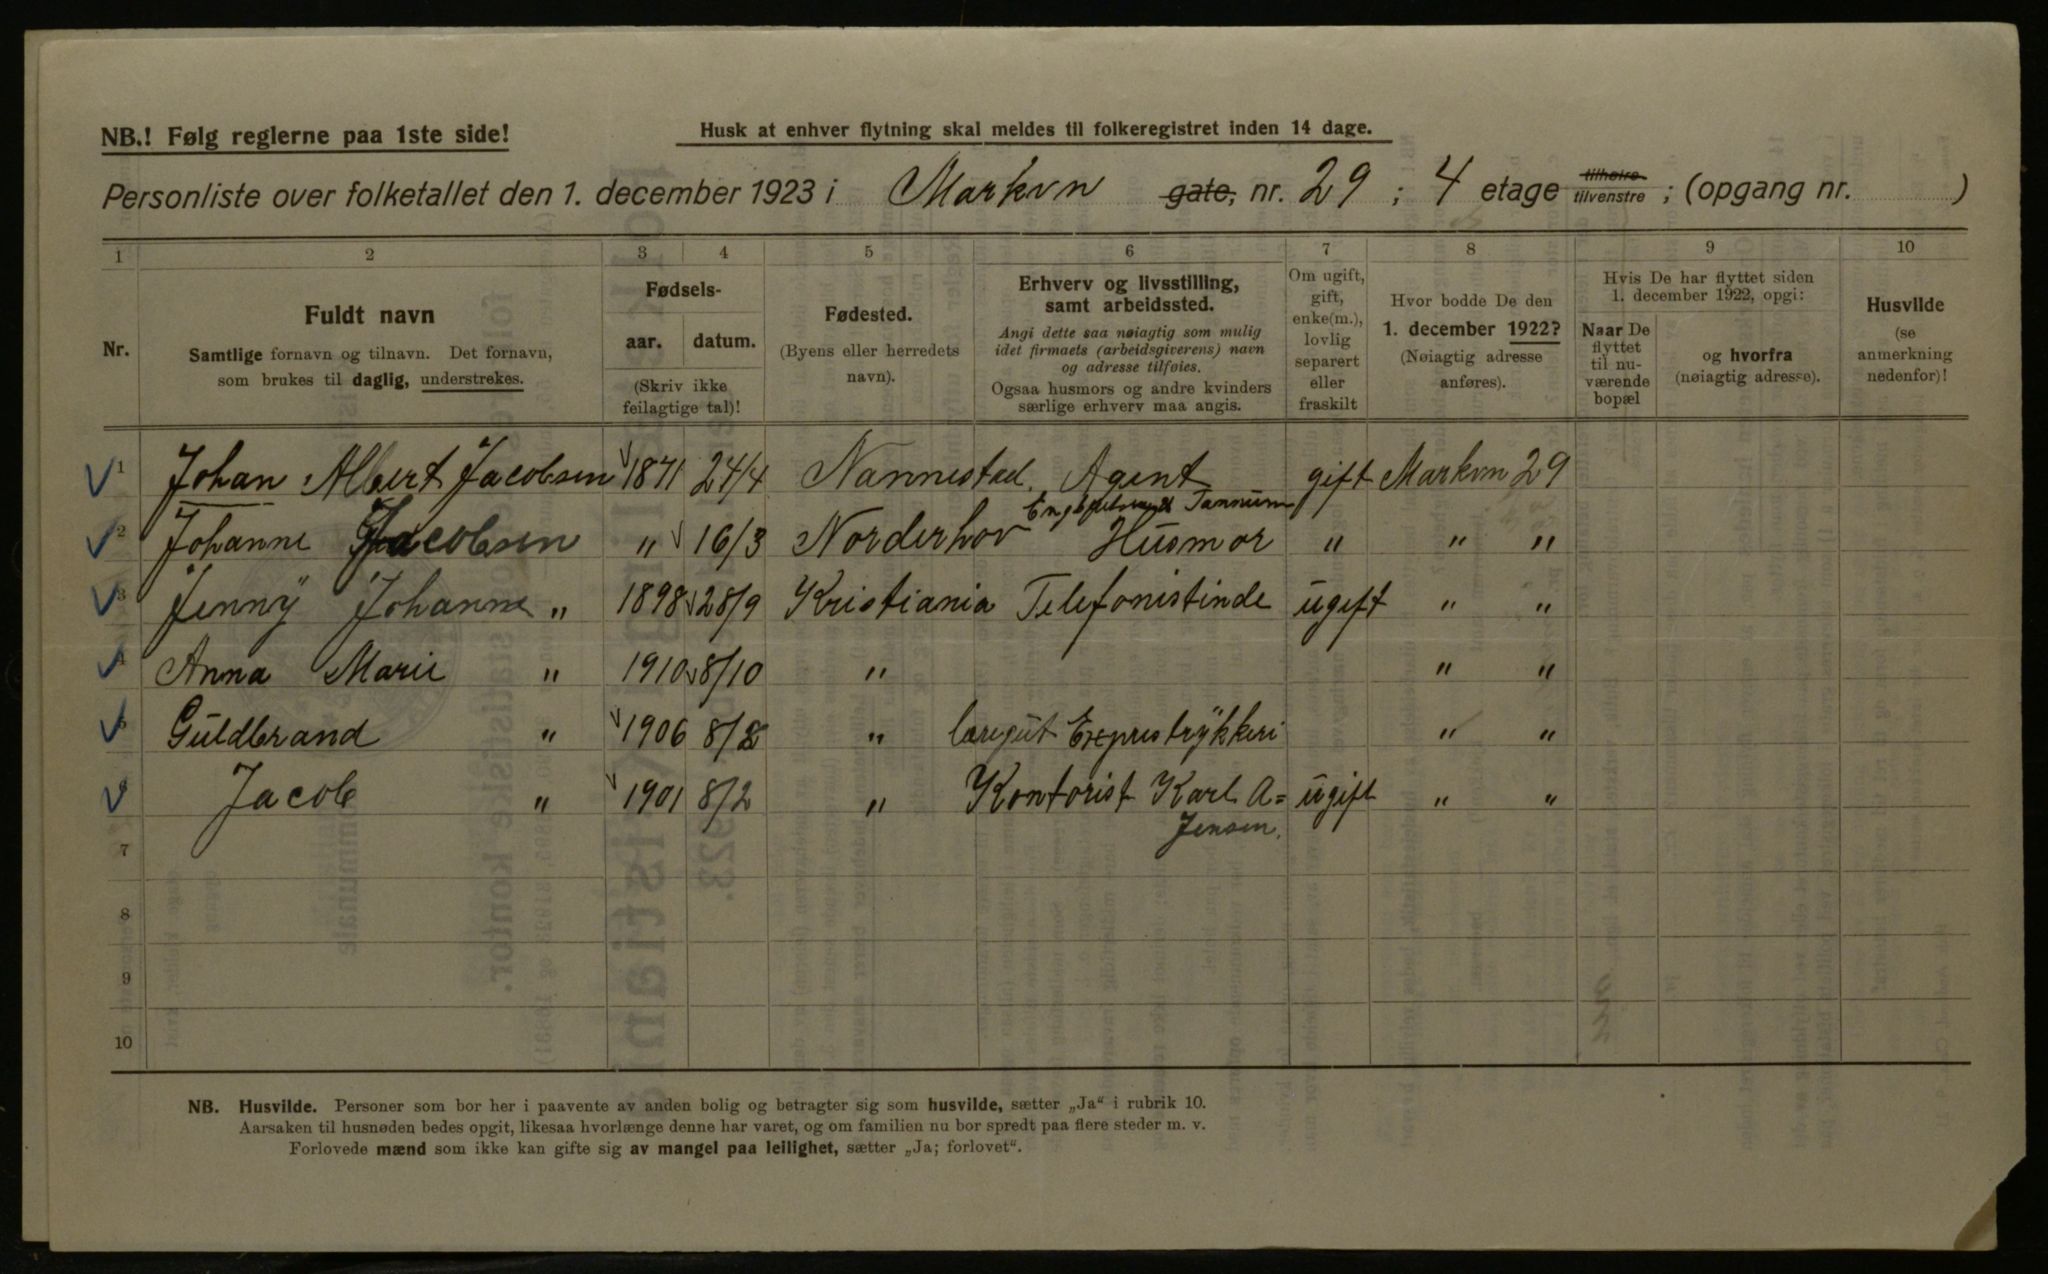 NB.! Følg reglerne paa 1ste side!
Husk at enhver flytning skal meldes til folkeregistret inden 14 dage.
Personliste over folketallet den 1. december 1923 i Markvn gate, nr. 29 ; 4 etage tilhøire tilvenstre ; (opgang nr. )
1 2 3 4 5 6 7 8 9 10
Nr.
Fuldt navn
Samtlige fornavn og tilnavn. Det fornavn,
som brukes til daglig, understrekes.
Fødsels-
aar. datum.
(Skriv ikke
feilagtige tal)!
Fødested.
(Byens eller herredets
navn).
Erhverv og livsstilling,
samt arbeidssted.
Angi dette saa nøiagtig som mulig
idet firmaets (arbeidsgiverens) navn
og adresse tilføies.
Ogsaa husmors og andre kvinders
særlige erhverv maa angis.
Om ugift,
gift,
enke(m.),
lovlig
separert
eller
fraskilt
Hvor bodde De den
1. december 1922?
(Nøiagtig adresse
anføres).
Hvis De har flyttet siden
1. december 1922, opgi:
Naar De
flyttet
til nu-
værende
bopæl
og hvorfra
(nøiagtig adresse).
Husvilde
(se
anmerkning
nedenfor)!
1 Johan Albert Jacobsen 1871 24/4 Nannestad. Agent gift Markvn 29
Tannum
2 Johanne Jacobsen " 16/3 Norderhov Husmor " " "
3 Jenny Johanne " 1898 28/9 Kristiania Telefonistinde ugift " "
4 Anna Marie " 1910 8/10 " " "
5 Guldbrand " 1906 8/2 " læregut Exprestrykkeri " "
6 Jacob " 1901 8/2 " Kontorist Karl A= ugift " "
Jensen.
7
8
9
10
NB. Husvilde. Personer som bor her i paavente av anden bolig og betragter sig som husvilde, sætter „Ja“ i rubrik 10.
Aarsaken til husnøden bedes opgit, likesaa hvorlænge denne har varet, og om familien nu bor spredt paa flere steder m. v.
Forlovede mænd som ikke kan gifte sig av mangel paa leilighet, sætter „Ja; forlovet“.